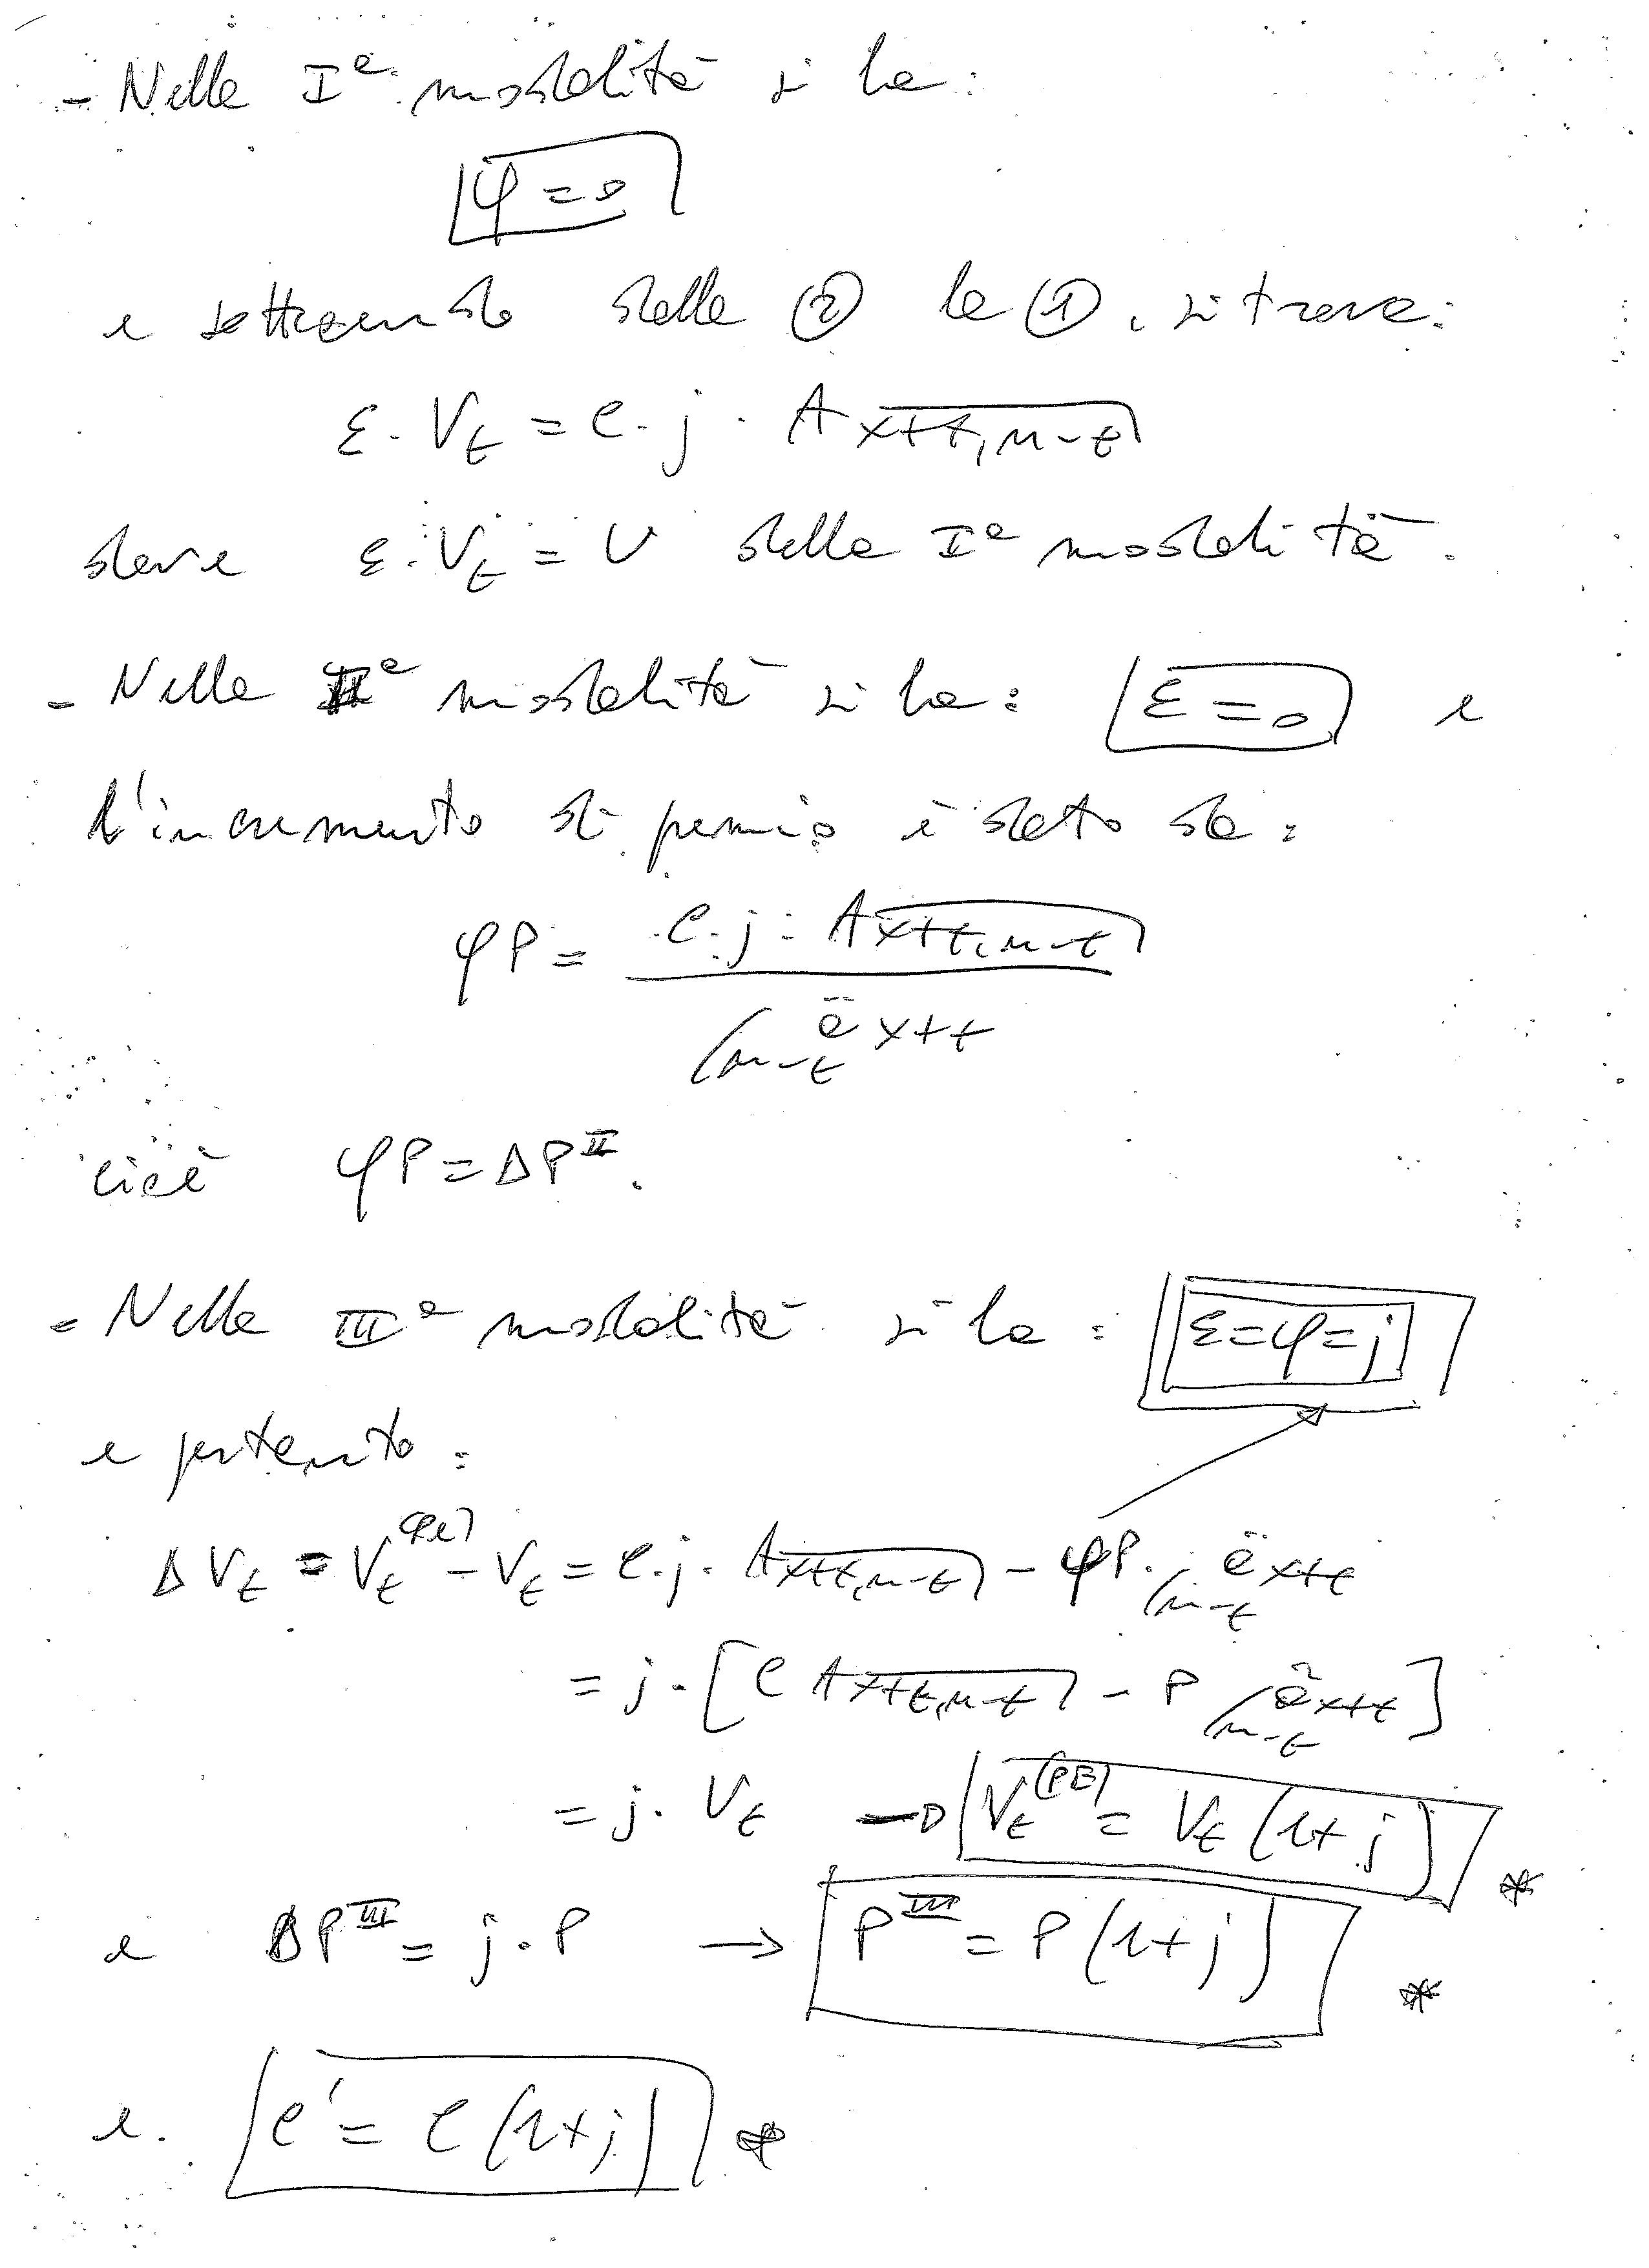 - Nella Iª modalità si ha:
φ = 0
e sottraendo dalla ② la ①, si trova:
ε · V_t = C · j · A_{x+t, n-t⌉}
dove ε · V_t = U della Iª modalità.
- Nella IIª modalità si ha: ε = 0 e
l'incremento di premio è dato da:
φP = C · j · A_{x+t, n-t⌉}
/n-t ä x+t
cioè φP = ΔP^II.
- Nella IIIª modalità si ha: ε = φ = j
e pertanto:
ΔV_t = V_t - V_t = C · j · A_{x+t, n-t⌉} - φP · /n-t ä x+t
= j · [C A_{x+t, n-t⌉} - P /n-t ä x+t]
= j · V_t → V_t^(PB) = V_t (1 + j) *
e ΔP^III = j · P → P^III = P (1 + j) *
e. C' = C (1 + j) *